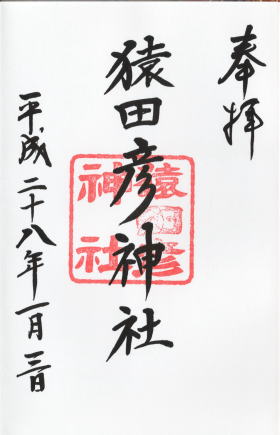 奉拝
猿田彦神社
猿田彦
神社
平成二十八年一月三日